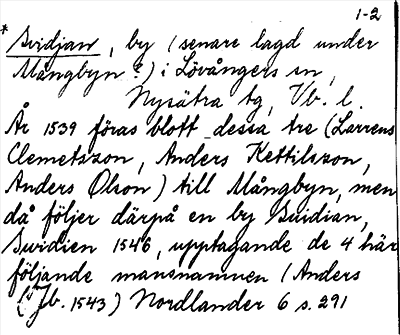 1-2
* Svidjan, by (senare lagd under
Mångbyn?) i Lövångers sn,
Nysätra tg, Vb. l.
År 1539 föras blott dessa tre (Larrens
Clemetszon, Anders Kettilszon,
Anders Olson) till Mångbyn, men
då följer därpå en by Suidian,
Swidien 1546, upptagande de 4 här
följande mansnamnen (Anders
Jb. 1543) Nordlander 6 s. 291